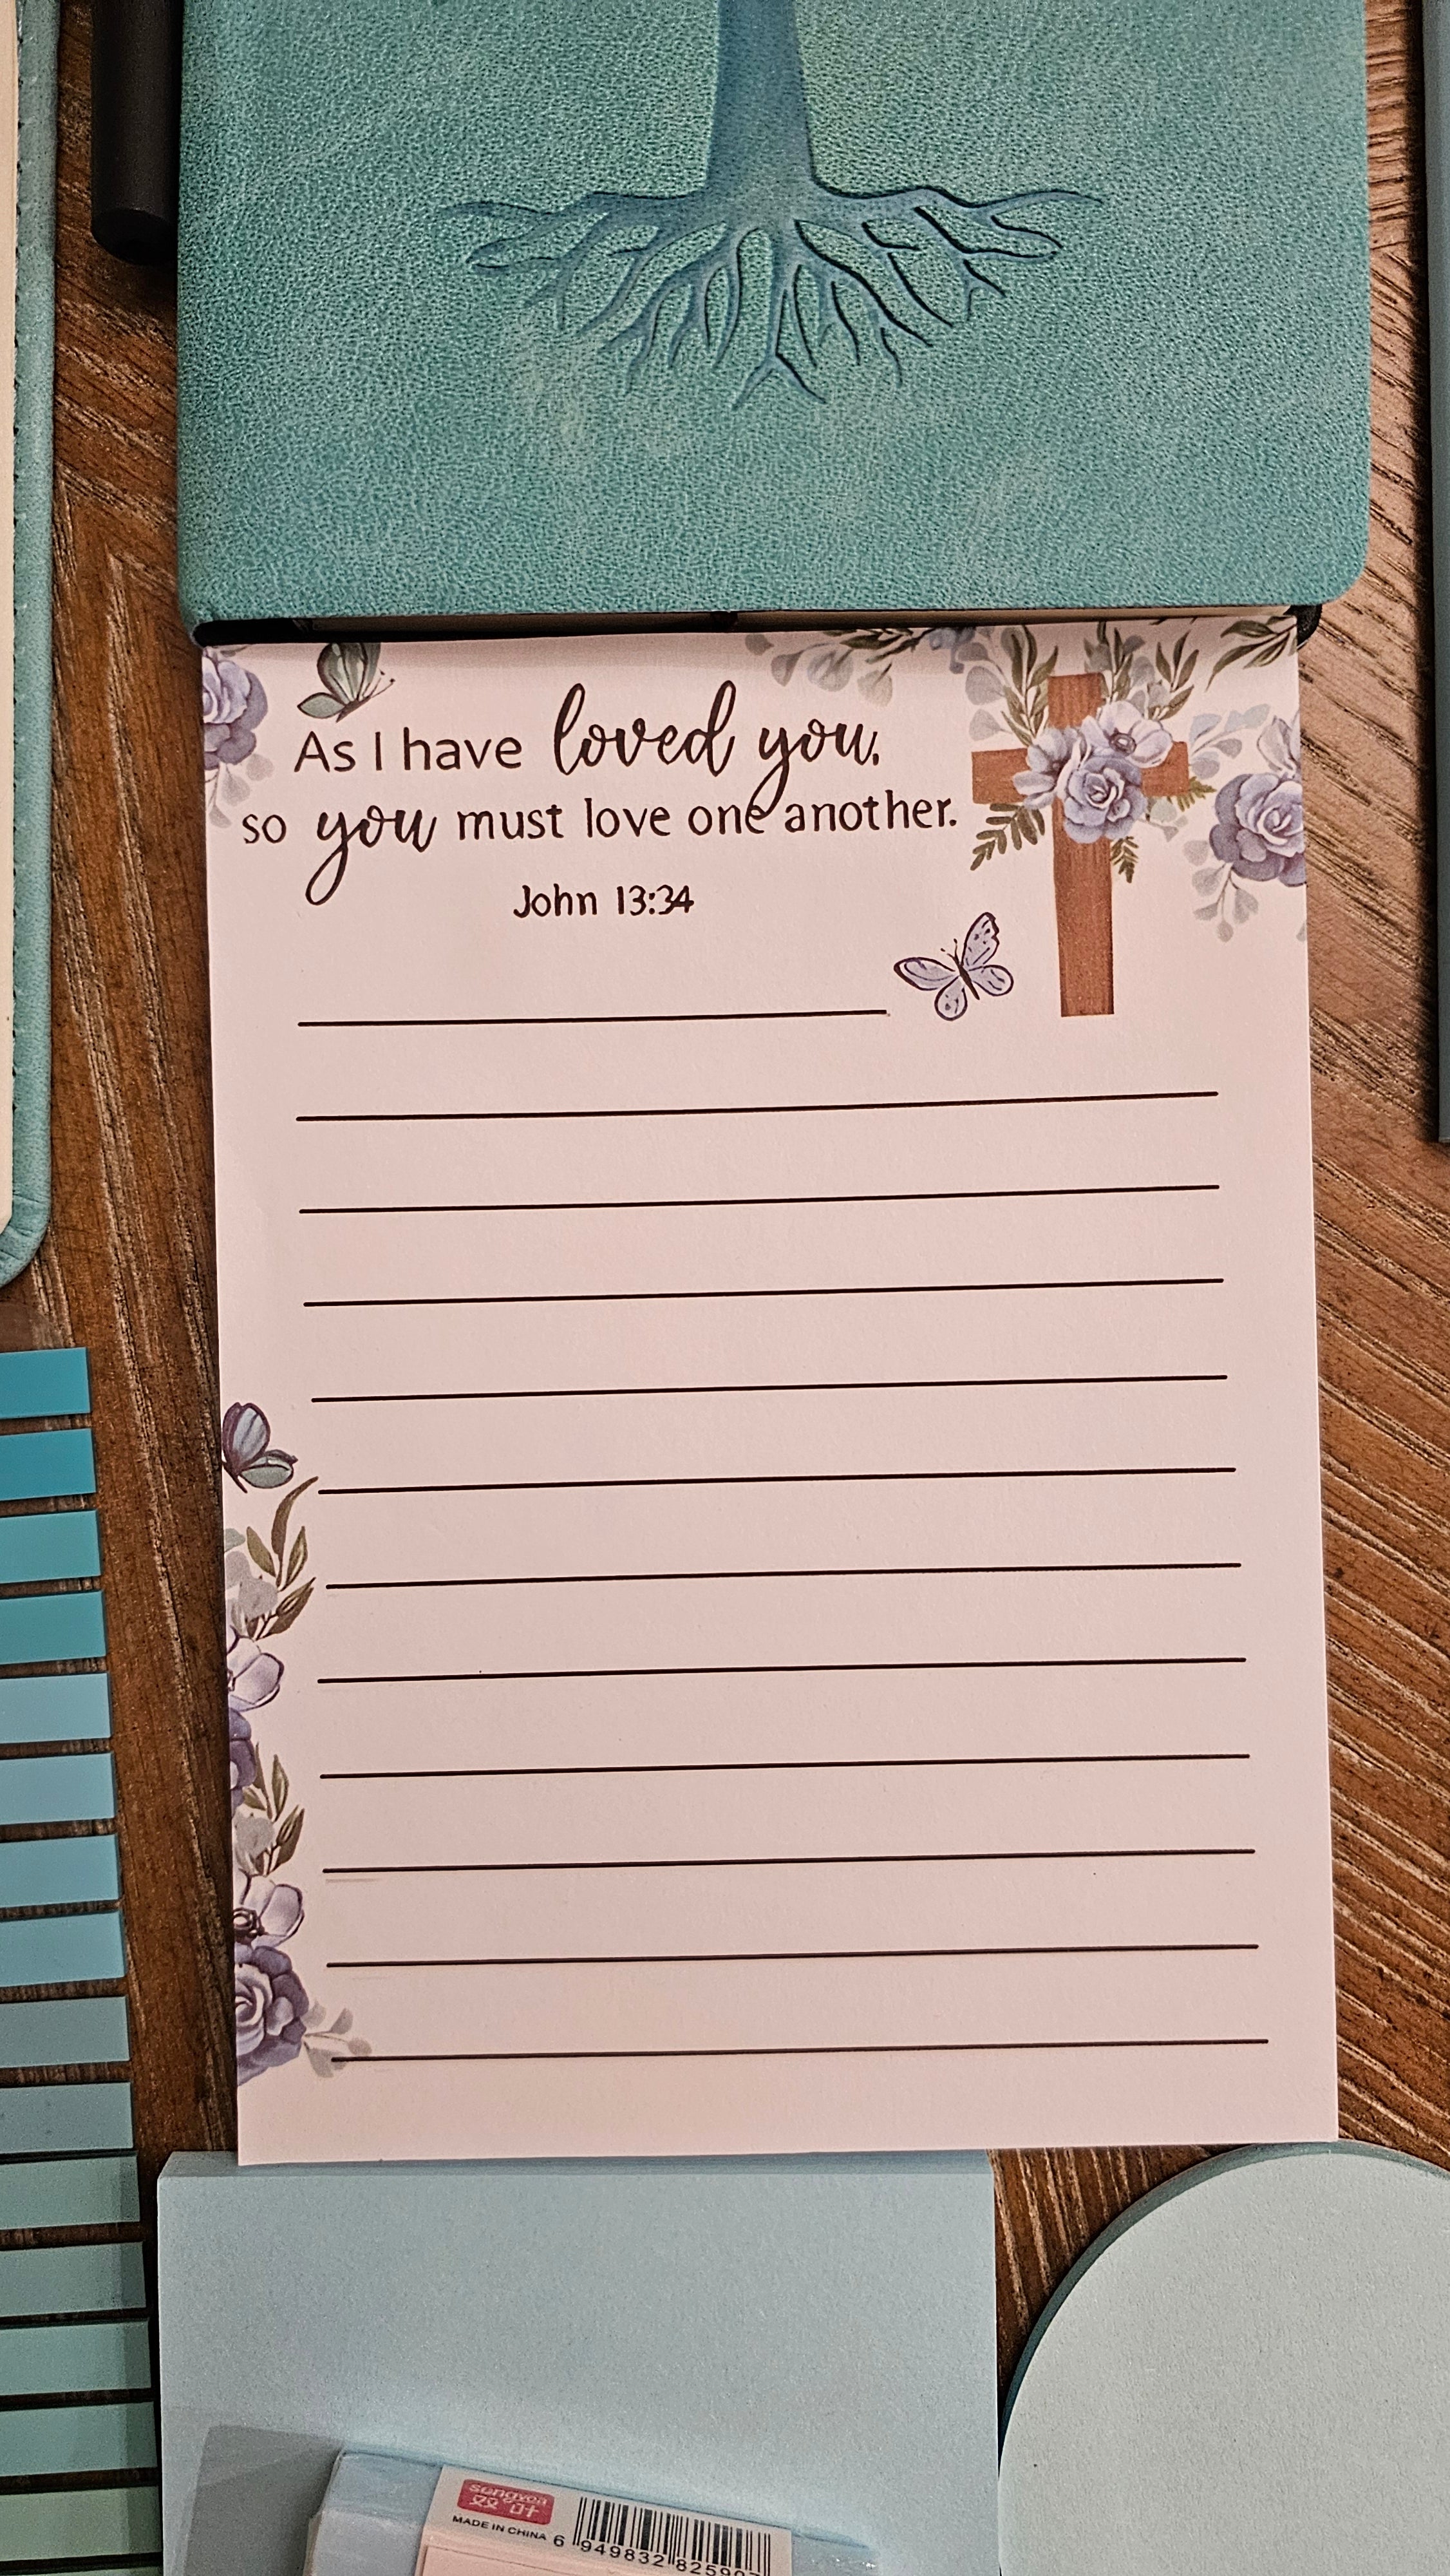 As I have loved you,
so you must love one another.
John 13:34
双叶
MADE IN CHINA
6 949832 82590